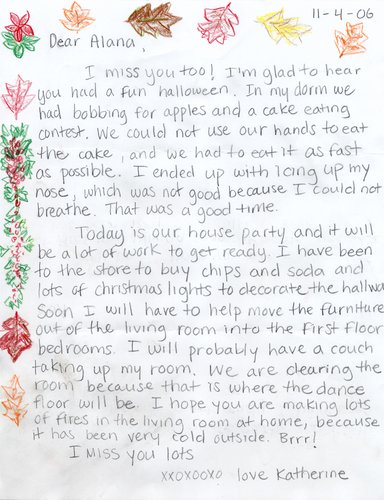 11-4-06
Dear Alana,
I miss you too! I'm glad to hear
you had a fun halloween. In my dorm we
had bobbing for apples and a cake eating
contest. We could not use our hands to eat
the cake, and we had to eat it as fast
as possible. I ended up with icing up my
nose, which was not good because I could not
breathe. That was a good time.
Today is our house party and it will
be a lot of work to get ready. I have been
to the store to buy chips and soda and
lots of christmas lights to decorate the hallwa
Soon I will have to help move the furniture
out of the living room into the first floor
bedrooms. I will probably have a couch
taking up my room. We are clearing the
room because that is where the dance
floor will be. I hope you are making lots
of fires in the living room at home, because
it has been very cold outside. Brrr!
I miss you lots
xxoxooxo love Katherine